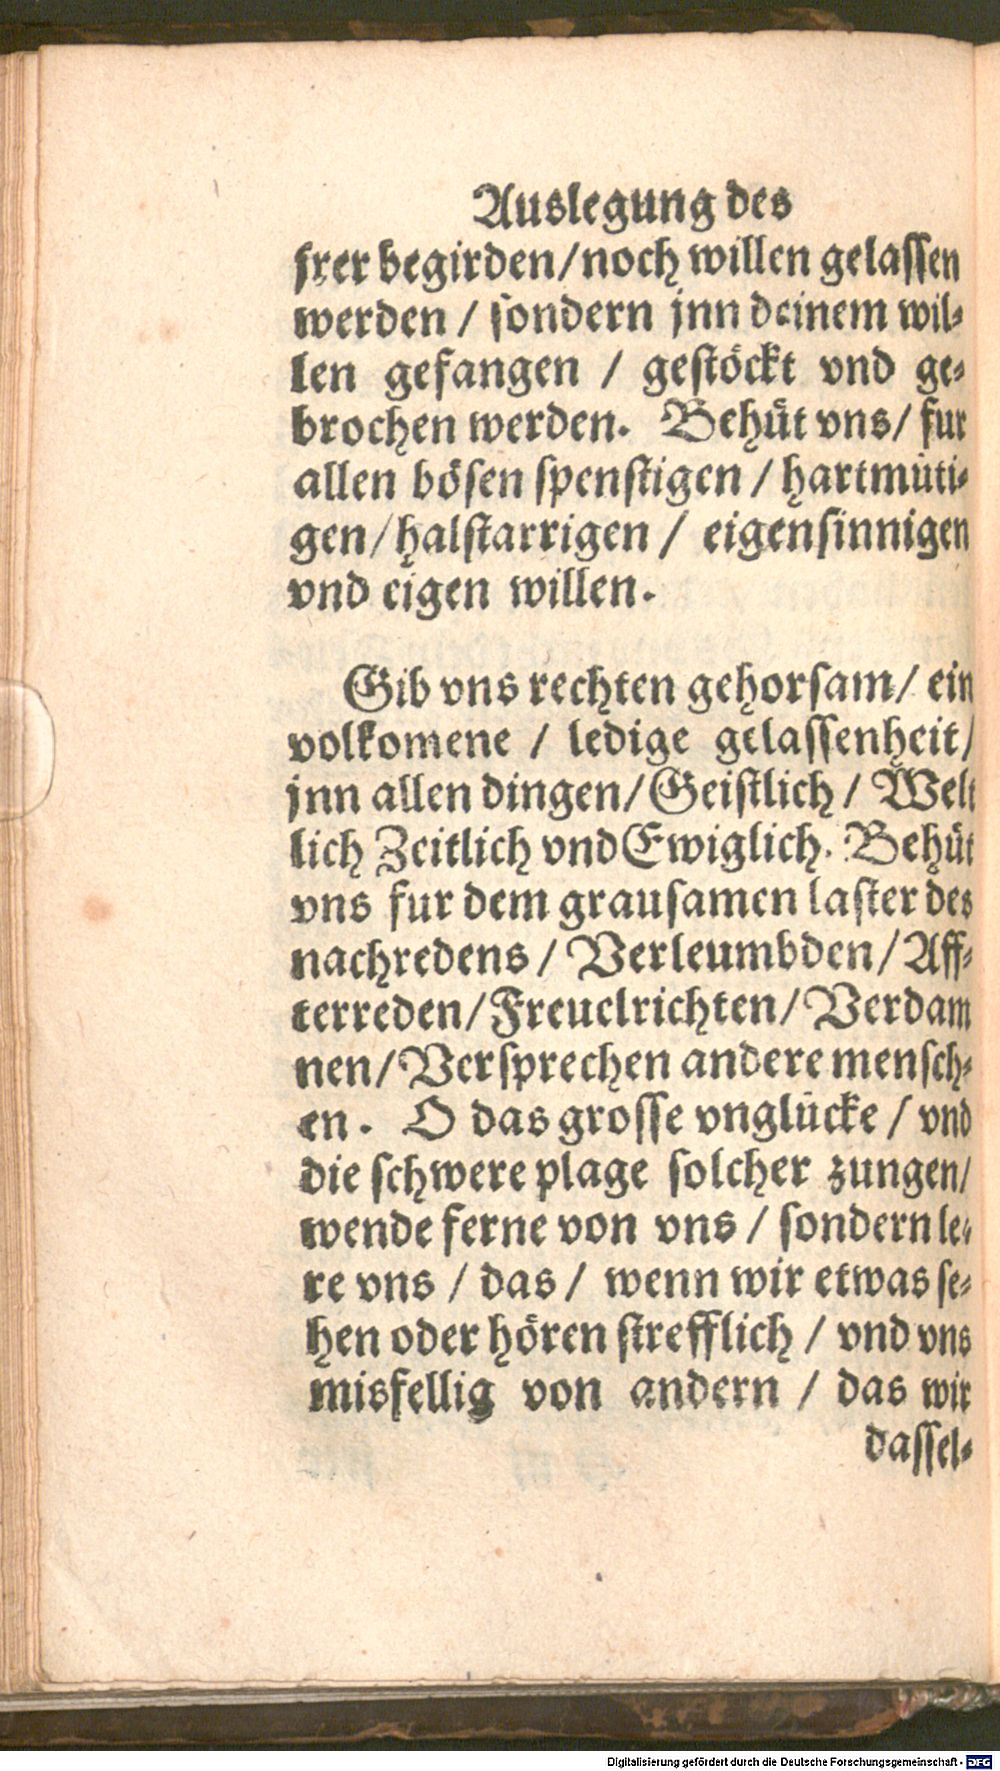 Auslegung des
srer begirden/noch willen gelassen
werden / sondern jnn deinem wil⸗
len gefangen / gestöckt vnd ge⸗
brochen werden. Behüt vns/ fur
allen bösen spenstigen / hartmüti⸗
gen/halstarrigen / eigensinnigen
vnd eigen willen.
Gib vns rechten gehorsam/ ein
volkomene / ledige gelassenheit/
jnn allen dingen/Geistlich / Welt
lich Zeitlich vnd Ewiglich. Behüt
vns fur dem grausamen laster des
nachredens / Verleumbden/Aff⸗
terreden/Freuelrichten/Verdam
nen/Versprechen andere mensch⸗
en. O das grosse vnglücke / vnd
die schwere plage solcher zungen/
wende ferne von vns / sondern le⸗
re vns / das / wenn wir etwas se⸗
hen oder hören strefflich / vnd vns
misfellig von andern / das wir
dassel⸗
Digitalisierung gefördert durch die Deutsche Forschungsgemeinschaft - DFG